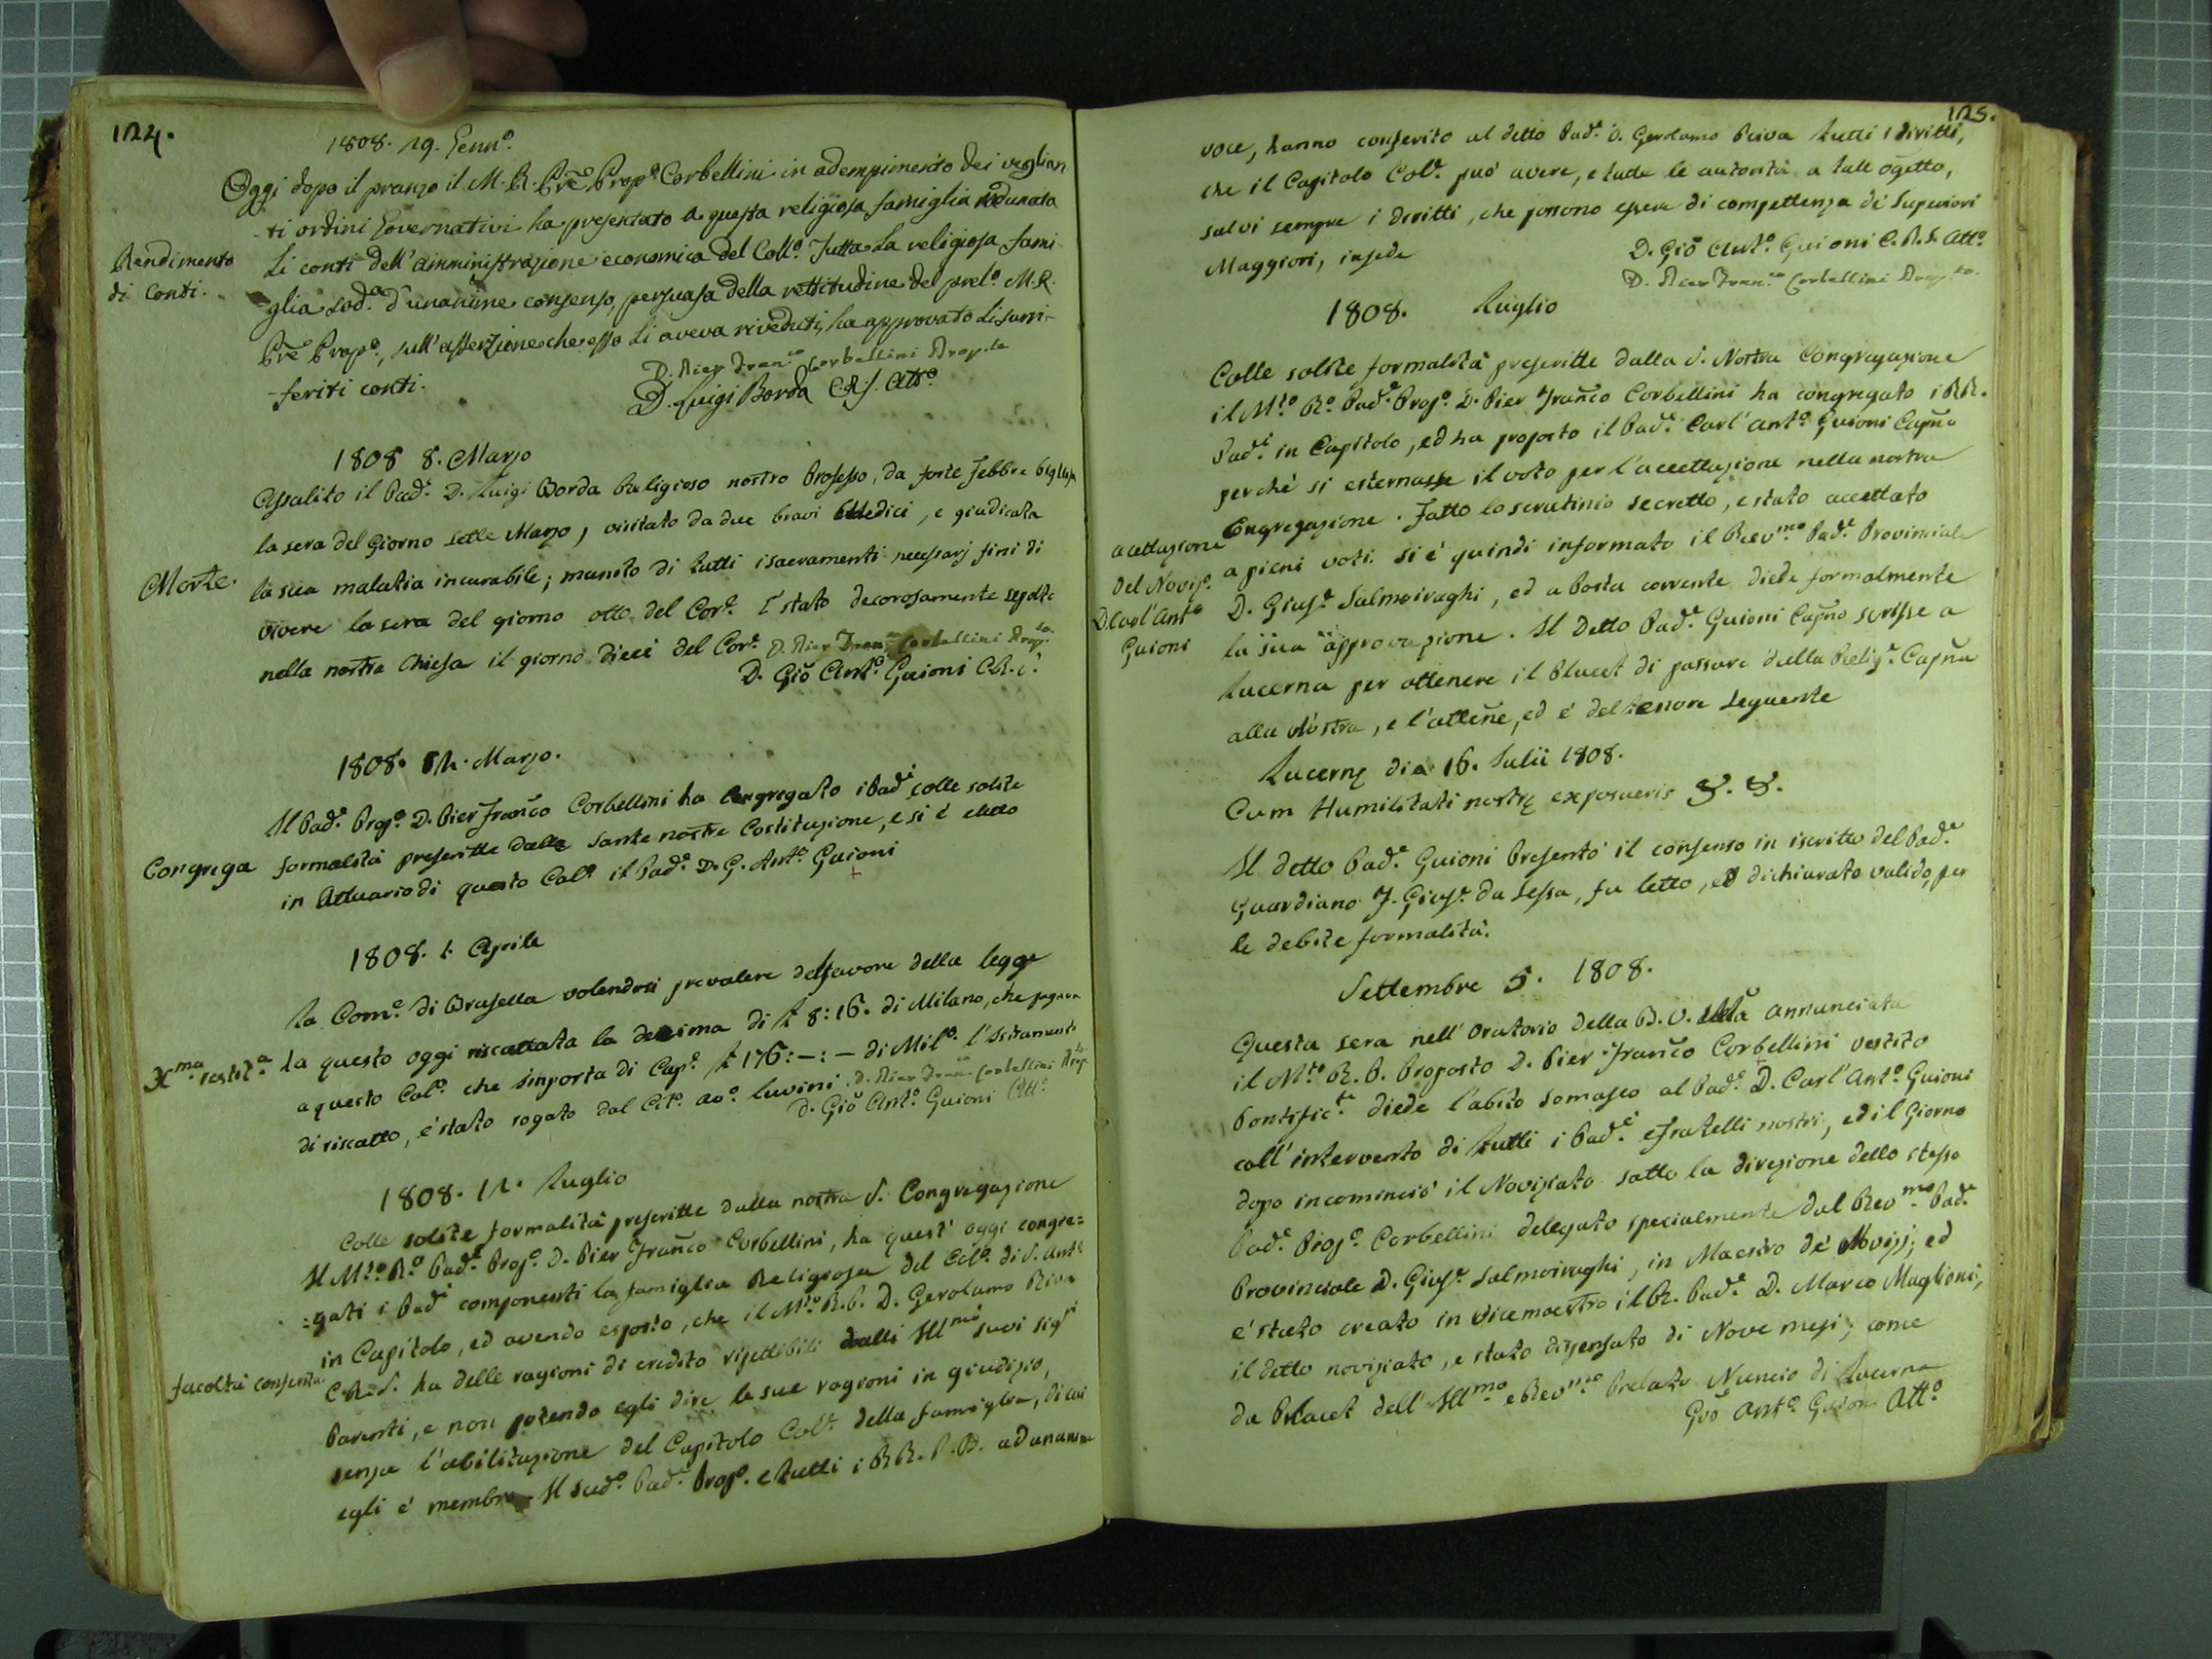 124.
1808. 29. Genn.o
Oggi dopo il pranzo il M. R. Pre Prop.o Corbellini in adempimento dei veglian
-ti ordini Governativi ha presentato a questa religiosa famiglia radunata
Rendimento di Conti.
li conti dell'amministrazione economica del Coll.o Tutta la religiosa fami
glia sod.a d'unanime consenso, persuasa della rettitudine del prel.o M. R.
Pre Prop.o, sull'asserzione che esso li aveva riveduti, ha approvato li surri-
-feriti conti.
D. Pier Fran.co Corbellini Prop.to
D. Luigi Borda C.R.S. Att.o
1808 8. Marzo
Assalito il Pad.e D. Luigi Borda Religioso nostro Professo, da forte febbre
la sera del Giorno sette Marzo, visitato da due bravi Medici, e giudicata
Morte.
la sua malatia incurabile; munito di tutti i sacramenti necessarj finì di
vivere la sera del giorno otto del Cor.e È stato decorosamente sepolto
nella nostra Chiesa il giorno dieci del Cor.e D. Pier Fran.co Corbellini Prop.to
D. Gio Ant.o Guioni C.R.S.
1808. 12. Marzo.
Il Pad.e Prop.o D. Pier Franco Corbellini ha congregato i Padi colle solite
Congrega
formalità prescritte dalle sante nostre Costituzione, e si è eletto
in Attuario di questo Col.o il Pad.e D. G. Ant.o Guioni
1808. 1. Aprile
La Com.e di Brusella volendosi prevalere del favore della legge
Xma restit.a
la questo oggi riscattata la decima di £ 8:16. di Milano, che pagava
a questo Col.o che importa di Cap.e £ 176:-:- di Mil.o l'Istrumento
di riscatto, è stato rogato dal Cit.o av.o Luvini. D. Pier Fran.co Corbellini Prop.to
D. Gio Ant.o Guioni Att.o
1808. 12. Luglio
Colle solite formalità prescritte dalla nostra S. Congregazione
Il M.to R.o Pad.e Prop.o D. Pier Franco Corbellini, ha quest'oggi congre=
=gati i Padi componenti la famiglia Religiosa del Col.o di S. Ant.o
in Capitolo, ed avendo esposto, che il M.to R.P. D. Gerolamo Riva
facoltà conferita
C.R.S. ha delle ragioni di credito risettibili dalli Illmi suoi Sigri
Parenti, e non potendo egli dire le sue ragioni in giudizio,
senza l'abilitazione del Capitolo Col.e della famiglia, di cui
egli è membro. Il sud.o Pad.e Prop.o e tutti i RR. P.P. ad unanime
125.
voce, hanno conferito al detto Pad.e D. Gerolamo Riva tutti i diritti,
che il Capitolo Col.e può avere, e tutte le autorità a tale ogetto,
salvi sempre i diritti, che possono essere di compettenza de' Superiori
Maggiori, in fede
D. Gio Ant.o Guioni C.R.S. Att.o
D. Pier Fran.co Corbellini Prop.to
1808. Luglio
Colle solite formalità prescritte dalla S. Nostra Congregazione
il M.to R.o Pad.e Prop.o D. Pier Franco Corbellini ha congregato i RR.
Pad.i in Capitolo, ed ha proposto il Pad.e Carl'Ant.o Guioni Capno
perchè si esternasse il voto per l'accettazione nella nostra
Congregazione. Fatto lo scrutinio secretto, e stato accettato
accettazione del Noviz.o D. Carl'Anto Guioni
a pieni voti. Si è quindi informato il Rev.mo Pad.e Provinciale
D. Gius.e Salmoiraghi, ed a Posta corrente diede formalmente
la sua approvazione. Il detto Pad.e Guioni Capno scrisse a
Lucerna per ottenere il Placet di passare dalla Relig.e Capna
alla Nostra, e l'ottene, ed è del tenore seguente
Lucernę die 16. Julii 1808.
Cum Humilitati nostrę exposueris &. &.
Il detto Pad.e Guioni Presentò il consenso in iscritto del Pad.e
Guardiano F. Gius.e da Sessa, fu letto, ed dichiarato valido, per
le debite formalità.
Settembre 5. 1808.
Questa sera nell'oratorio della B. V. della Annunciata
il M.to R. P. Proposto D. Pier Franco Corbellini vestito
Pontific.te diede l'abito Somasco al Pad.e D. Carl'Ant.o Guioni
coll'intervento di tutti i Pad.i e fratelli nostri, ed il Giorno
dopo incominciò il Noviziato sotto la direzione dello stesso
Pad.e Prop.o Corbellini delegato specialmente dal Rev.mo Pad.e
Provinciale D. Gius.e Salmoiraghi, in Maestro de' Novizj; ed
è stato creato in Vicemaestro il R. Pad.e D. Marco Maglioni,
il detto noviziato, e stato dispensato di Nove mesi; come
da Placet dell'Ill.mo e Rev.mo Prelato Nuncio di Lucerna
Gio Ant.o Guioni Att.o